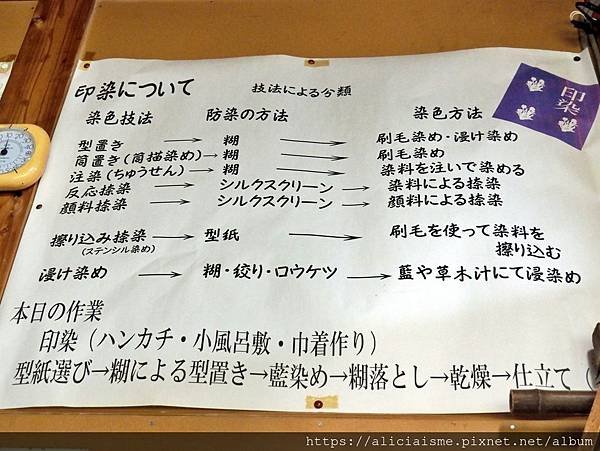 印染について 技法による分類
染色技法 防染の方法 染色方法
型置き → 糊 → 刷毛染め・浸け染め
筒置き(筒描染め)→ 糊 → 刷毛染め
注染(ちゅうせん)→ 糊 → 染料を注いで染める
反応捺染 → シルクスクリーン → 染料による捺染
顔料捺染 → シルクスクリーン → 顔料による捺染
擦り込み捺染 → 型紙 → 刷毛を使って染料を
(ステンシル染め) 擦り込む
浸け染め → 糊・絞り・ロウケツ → 藍や草木汁にて浸染め
本日の作業
印染(ハンカチ・小風呂敷・巾着作り)
型紙選び→糊による型置き→藍染め→糊落とし→乾燥→仕立て(
印染
https://aliciaisme.pixnet.net/album